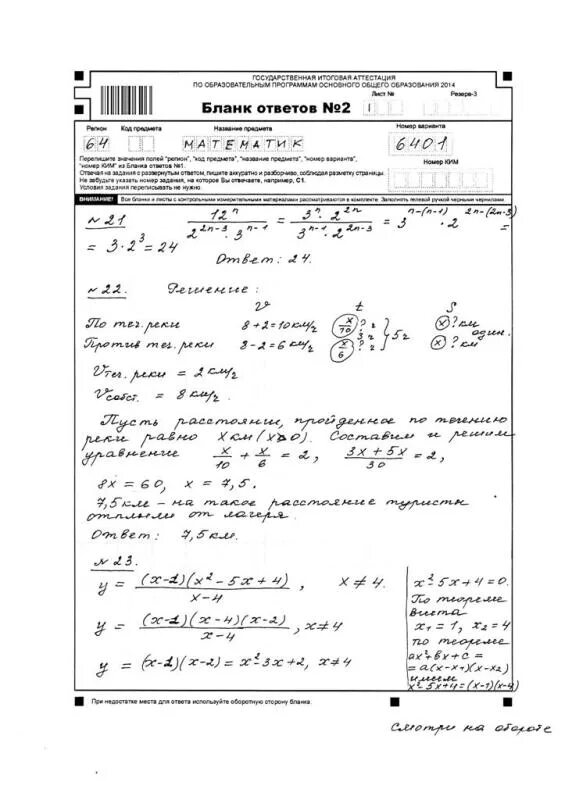 ГОСУДАРСТВЕННАЯ ИТОГОВАЯ АТТЕСТАЦИЯ
ПО ОБРАЗОВАТЕЛЬНЫМ ПРОГРАММАМ ОСНОВНОГО ОБЩЕГО ОБРАЗОВАНИЯ 2014
Бланк ответов №2
Лист № 1
Резерв-3
Регион Код предмета Название предмета Номер варианта
64 МАТЕМАТИК 6401
Номер КИМ
Перепишите значения полей "регион", "код предмета", "название предмета", "номер варианта",
"номер КИМ" из Бланка ответов №1.
Отвечая на задания с развернутым ответом, пишите аккуратно и разборчиво, соблюдая разметку страницы.
Не забудьте указать номер задания, на которое Вы отвечаете, например, С1.
Условия задания переписывать не нужно.
ВНИМАНИЕ! Все бланки и листы с контрольными измерительными материалами рассматриваются в комплекте. Заполнять гелевой ручкой черными чернилами.
№21 12^n / (2^(2n-3) · 3^(n-1)) = (3^n · 2^(2n)) / (3^(n-1) · 2^(2n-3)) = 3^(n-(n-1)) · 2^(2n-(2n-3)) =
= 3·2^3 = 24
Ответ: 24.
№22. Решение:
V t S
По теч. реки 8+2=10км/ч x/10 ? ч x ? км
3 ч } 5ч один.
Против теч. реки 8-2=6км/ч x/6 ? ч x ? км
Vтеч. реки = 2 км/ч
Vсобст. = 8 км/ч.
Пусть расстояние, пройденное по течению
реки равно x км (x>0). Составим и решим
уравнение x/10 + x/6 = 2, (3x+5x)/30 = 2,
8x = 60, x = 7,5.
7,5км – на такое расстояние туристы
отплыли от лагеря.
Ответ: 7,5км.
№23.
y = (x-1)(x²-5x+4)/(x-4), x≠4.
y = (x-1)(x-4)(x-2)/(x-4), x≠4
y = (x-1)(x-2) = x²-3x+2, x≠4
x²-5x+4=0.
По теореме
Виета
x₁=1, x₂=4
по теореме
ax²+bx+c=
=a(x-x₁)(x-x₂)
имеем
x²-5x+4=(x-1)(x-4)
При недостатке места для ответа используйте оборотную сторону бланка.
Смотри на обороте